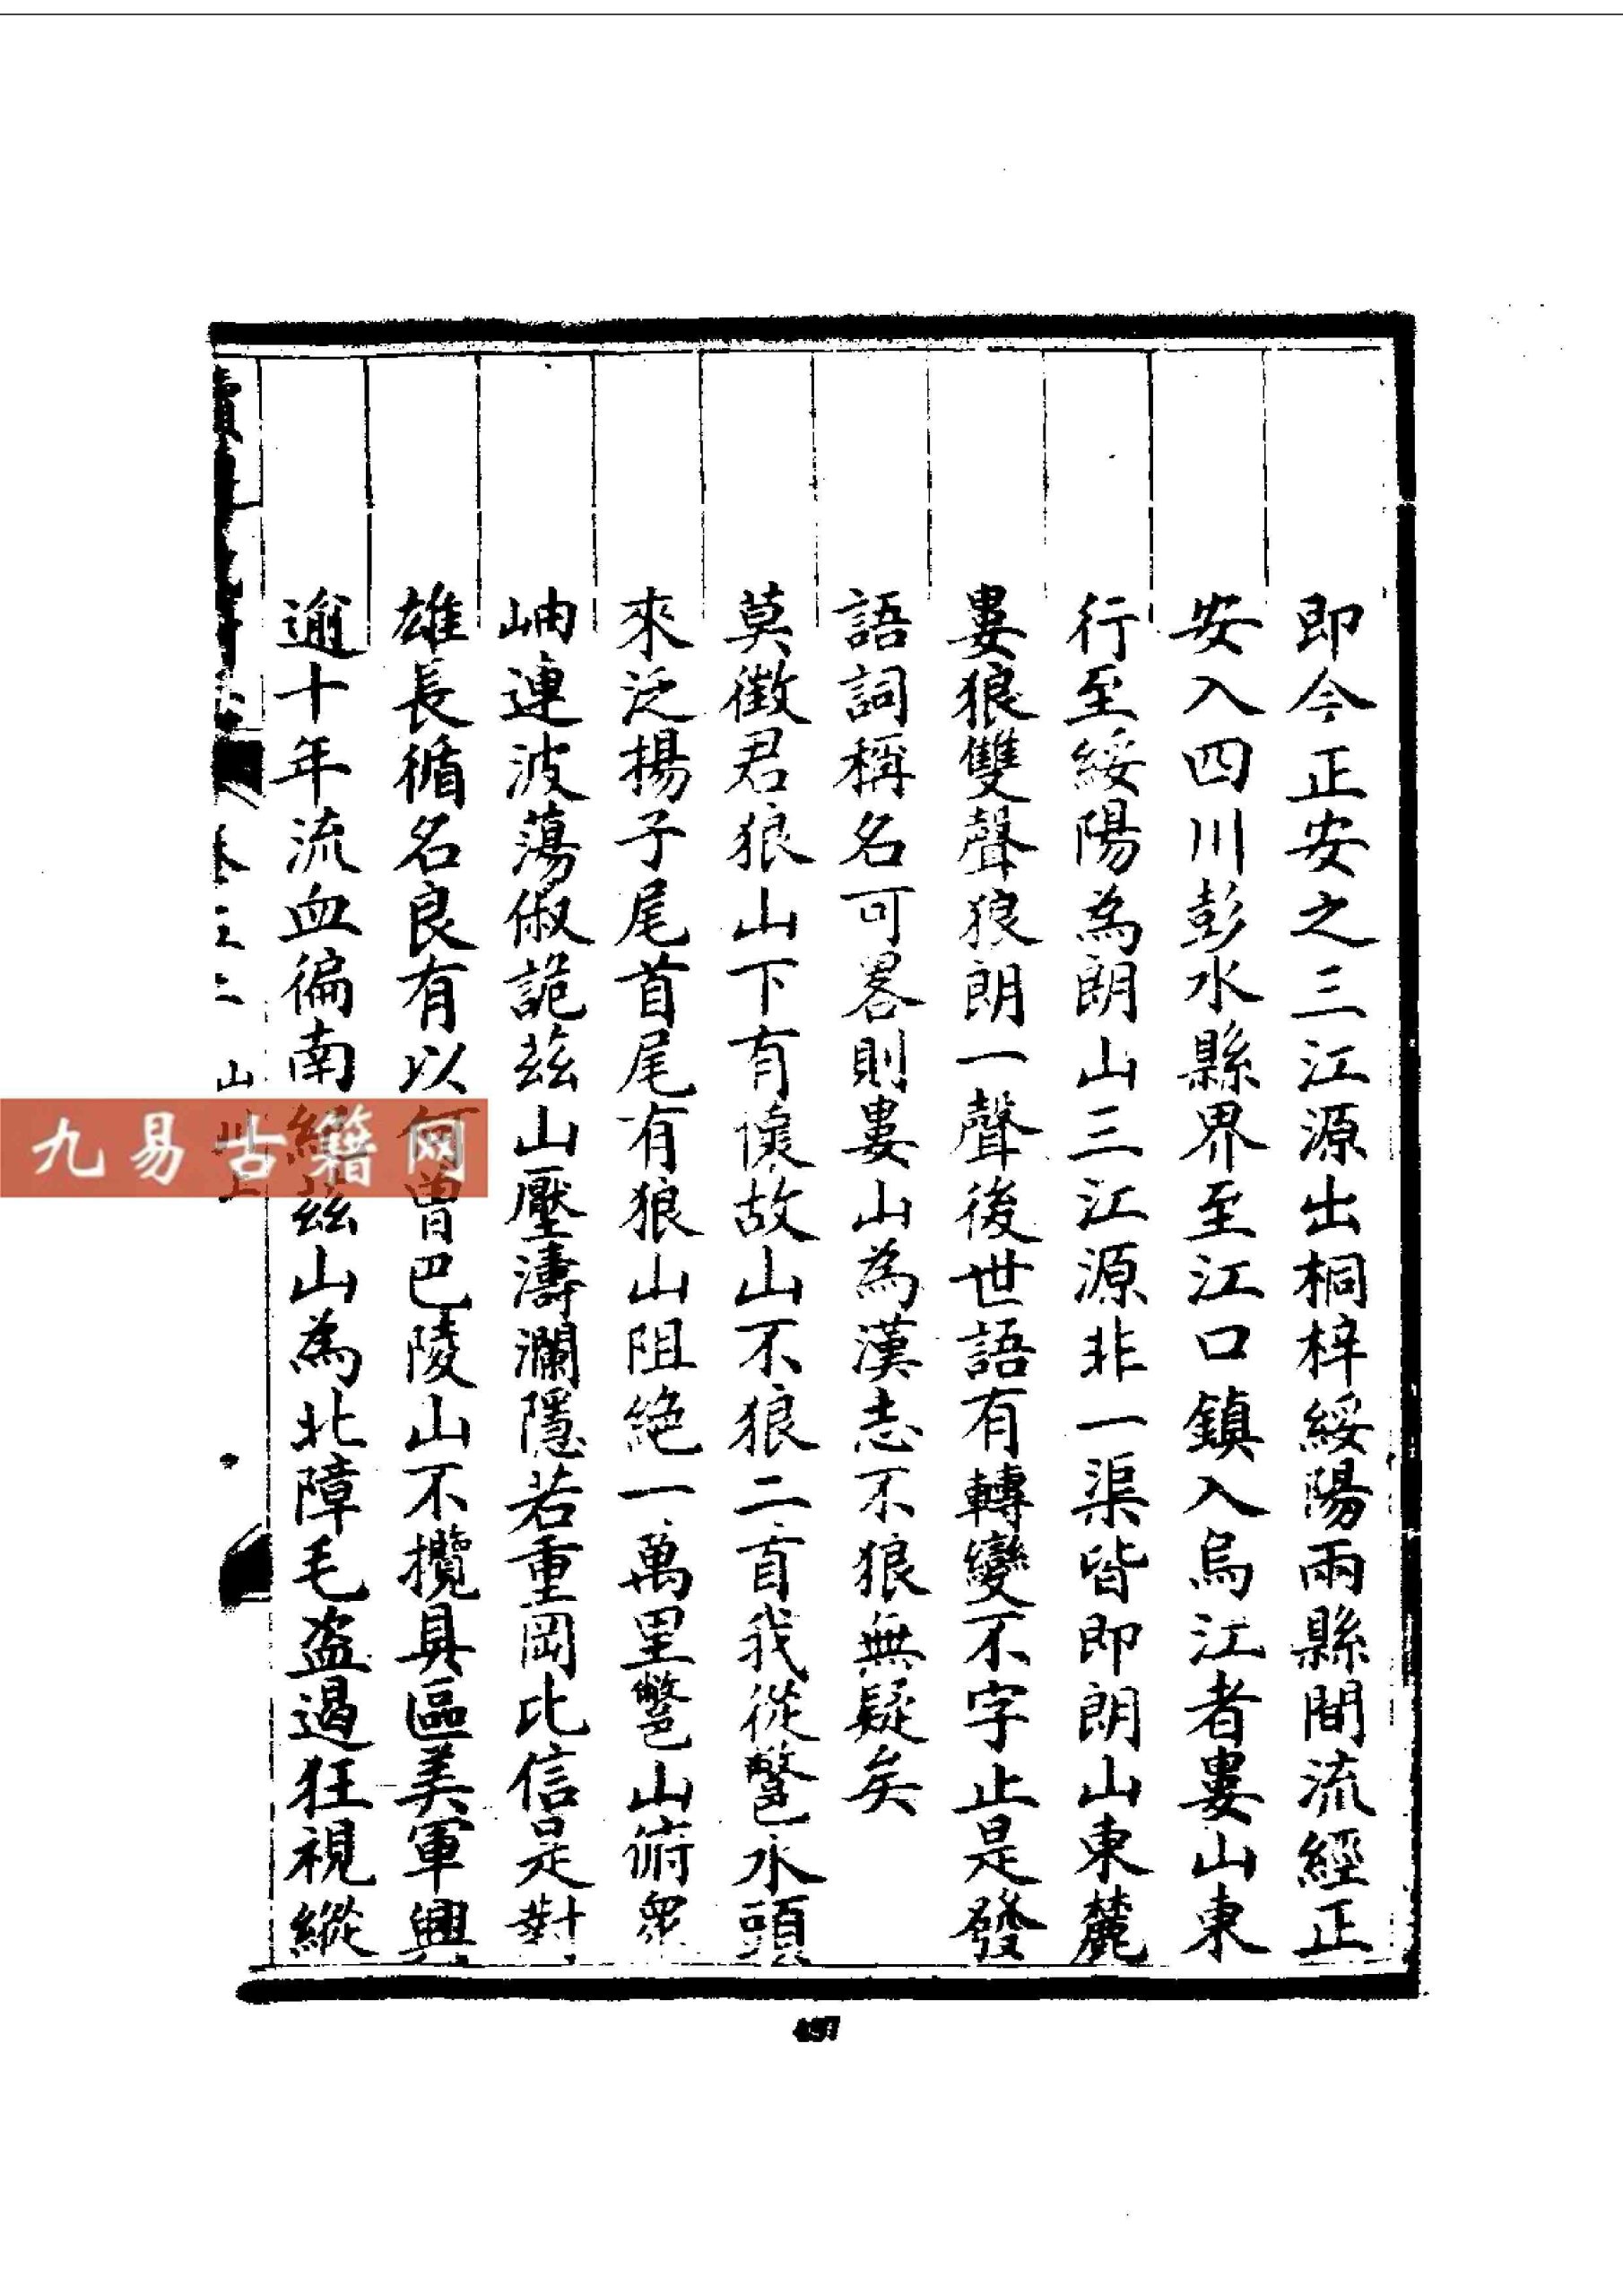 即今正安之三江源出桐梓綏陽兩縣間流經正
安入四川彭水縣界至江口鎮入烏江者婁山東
行至綏陽為朗山三江源非一渠皆即朗山東麓
婁狼雙聲狼朗一聲後世語有轉變不字止是發
語詞稱名可畧則婁山為漢志不狼無疑矣
莫徵君狼山下有懷故山不狼二首我從鷩邑水頭
來泛揚子尾首尾有狼山阻絶一萬里鷩邑山俯衆
岫連波蕩俶詭兹山壓濤瀾隱若重岡比信是對
雄長循名良有以何曾巴陵山不攬具區美軍興
逾十年流血徧南紀兹山為北障毛盗遏狂視縱
山川上
九易古籍网